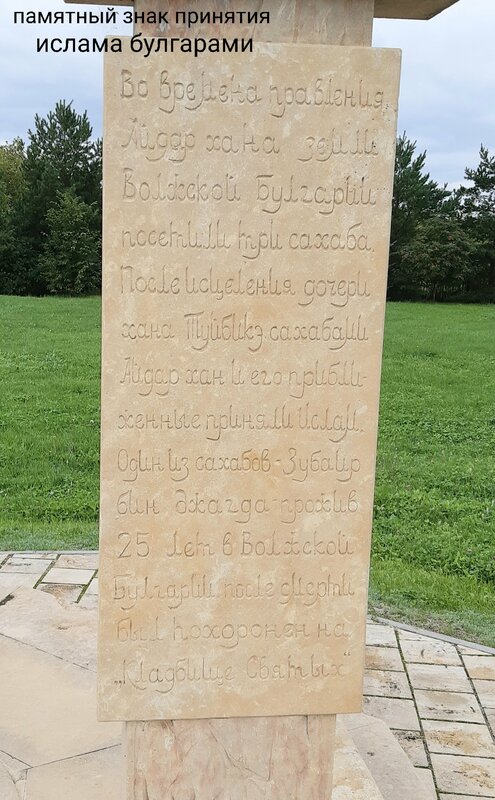 памятный знак принятия
ислама булгарами
Во времена правления
Айдар хана земли
Волжской Булгарии
посетили три сахаба.
После исцеления дочери
хана Туйбикэ сахабами
Айдар хан и его прибли-
женные приняли Ислам.
Один из сахабов - Зубаир
бин Джагда - прожив
25 лет в Волжской
Булгарии после смерти
был похоронен на
"Кладбище Святых"